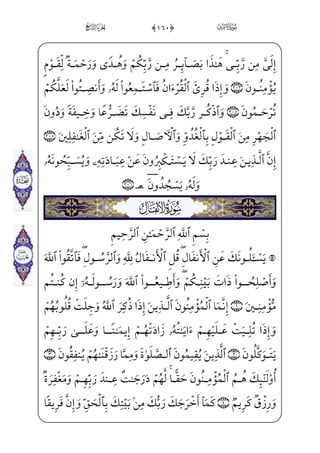 سُورَةُ الأَنفَالِ ﴿١٦٠﴾ الجُزْءُ التَّاسِعُ
إِلَىَّ مِن رَّبِّى ۚ هَٰذَا بَصَآئِرُ مِن رَّبِّكُمْ وَهُدًى وَرَحْمَةٌ لِّقَوْمٍ
يُؤْمِنُونَ ﴿٢٠٣﴾ وَإِذَا قُرِئَ ٱلْقُرْءَانُ فَٱسْتَمِعُوا۟ لَهُۥ وَأَنصِتُوا۟ لَعَلَّكُمْ
تُرْحَمُونَ ﴿٢٠٤﴾ وَٱذْكُر رَّبَّكَ فِى نَفْسِكَ تَضَرُّعًا وَخِيفَةً وَدُونَ
ٱلْجَهْرِ مِنَ ٱلْقَوْلِ بِٱلْغُدُوِّ وَٱلْءَاصَالِ وَلَا تَكُن مِّنَ ٱلْغَٰفِلِينَ ﴿٢٠٥﴾
إِنَّ ٱلَّذِينَ عِندَ رَبِّكَ لَا يَسْتَكْبِرُونَ عَنْ عِبَادَتِهِۦ وَيُسَبِّحُونَهُۥ
وَلَهُۥ يَسْجُدُونَ ﴿٢٠٦﴾
سُورَةُ الأَنفَالِ
بِسْمِ ٱللَّهِ ٱلرَّحْمَٰنِ ٱلرَّحِيمِ
يَسْـَٔلُونَكَ عَنِ ٱلْأَنفَالِ ۖ قُلِ ٱلْأَنفَالُ لِلَّهِ وَٱلرَّسُولِ ۖ فَٱتَّقُوا۟ ٱللَّهَ
وَأَصْلِحُوا۟ ذَاتَ بَيْنِكُمْ ۖ وَأَطِيعُوا۟ ٱللَّهَ وَرَسُولَهُۥٓ إِن كُنتُم
مُّؤْمِنِينَ ﴿١﴾ إِنَّمَا ٱلْمُؤْمِنُونَ ٱلَّذِينَ إِذَا ذُكِرَ ٱللَّهُ وَجِلَتْ قُلُوبُهُمْ
وَإِذَا تُلِيَتْ عَلَيْهِمْ ءَايَٰتُهُۥ زَادَتْهُمْ إِيمَٰنًا وَعَلَىٰ رَبِّهِمْ
يَتَوَكَّلُونَ ﴿٢﴾ ٱلَّذِينَ يُقِيمُونَ ٱلصَّلَوٰةَ وَمِمَّا رَزَقْنَٰهُمْ يُنفِقُونَ ﴿٣﴾
أُو۟لَٰٓئِكَ هُمُ ٱلْمُؤْمِنُونَ حَقًّا ۚ لَّهُمْ دَرَجَٰتٌ عِندَ رَبِّهِمْ وَمَغْفِرَةٌ
وَرِزْقٌ كَرِيمٌ ﴿٤﴾ كَمَآ أَخْرَجَكَ رَبُّكَ مِنۢ بَيْتِكَ بِٱلْحَقِّ وَإِنَّ فَرِيقًا